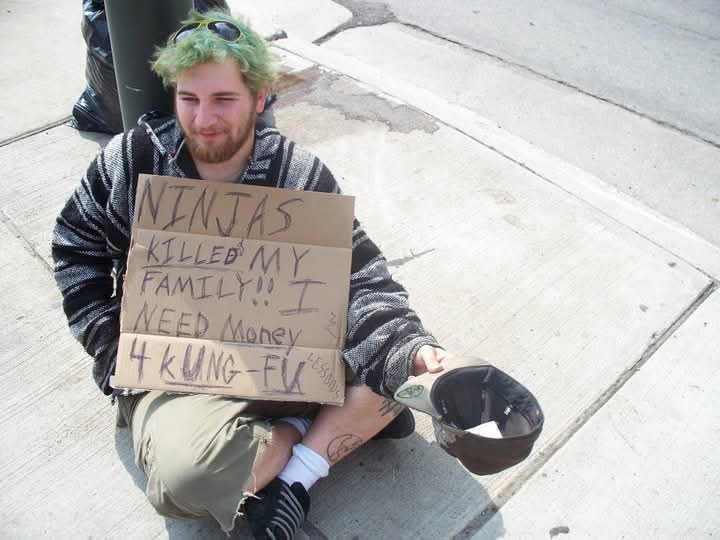 NINJAS
KILLED MY
FAMILY!! I
NEED MONEY
4 KUNG-FU
LESSONS